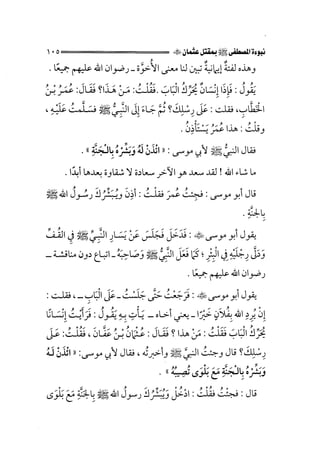 نبوءة المصطفى ﷺ بمقتل عثمان ﷺ ١٠٥
وهذه لفتةٌ إيمانيةٌ تبين لنا معنى الأُخوَّة ـ رضوان الله عليهم جميعًا .
يَقُولُ : فَإِذَا إِنْسَانٌ يُحَرِّكُ الْبَابَ . فَقُلْتُ : مَنْ هَذَا؟ فَقَالَ : عُمَرُ بْنُ
الْخَطَّابِ، فقلت : عَلَى رِسْلِكَ؟ ثُمَّ جَاءَ إِلَى النَّبِيِّ ﷺ فَسَلَّمتُ عَلَيْهِ ،
وقلْتُ : هذا عُمَرُ يَسْتَأْذِنُ .
فقال النبيُّ ﷺ لأبي موسى : « ائْذَنْ لَهُ وَبَشِّرْهُ بِالْجَنَّةِ » .
ما شاء الله ! لقد سعد هو الآخر سعادة لا شقاوة بعدها أبدًا .
قال أبو موسى : فجئتُ عُمرَ فقلْتُ : أَذِنَ ويُبَشِّرُكَ رسُولُ الله ﷺ
بِالْجَنَّةِ .
يقول أبو موسى : فَدَخَلَ فَجَلَسَ عَنْ يَسَارِ النَّبِيِّ ﷺ فِي الْقُفِّ
وَدَلَّى رِجْلَيْهِ فِي الْبِئْرِ ؛ كَمَا فَعَلَ النَّبِيُّ ﷺ وَصَاحِبُهُ ـ اتباع دون مناقشة ـ
رضوان الله عليهم جميعًا .
يقول أبو موسى : فَرَجَعْتُ حَتَّى جَلَسْتُ ـ عَلَى الْبَابِ ـ ، فقلت :
إِنْ يُرِدِ الله بِفُلَانٍ خَيْرًا ـ يعني أخاه ـ يَأْتِ بِهِ يَقُولُ : فَرَأَيْتُ إِنْسَانًا
يُحَرِّكُ الْبَابَ فَقُلْتُ : مَنْ هذا ؟ فَقَالَ : عُثْمَانُ بْنُ عَفَّانَ ، فَقُلْتُ : عَلَى
رِسْلِكَ؟ قال وجئتُ النبيَّ ﷺ وأخبرتُه ، فقال لأبي موسى : « ائْذَنْ لَهُ
وَبَشِّرْهُ بِالْجَنَّةِ مَعَ بَلْوَى تُصِيبُهُ » .
قال : فجئْتُ فقُلْتُ : ادْخُلْ وَيُبَشِّرُكَ رسولُ الله ﷺ بِالْجَنَّةِ مَعَ بَلْوَى